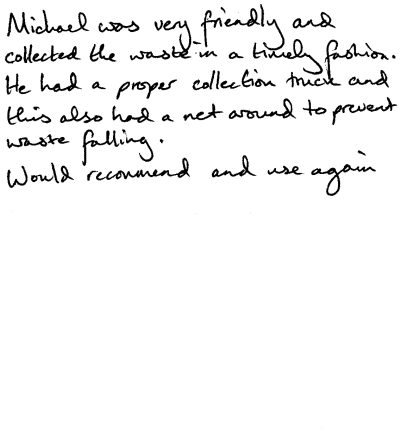 Michael was very friendly and
collected the waste in a timely fashion.
He had a proper collection truck and
this also had a net around to prevent
waste falling.
Would recommend and use again